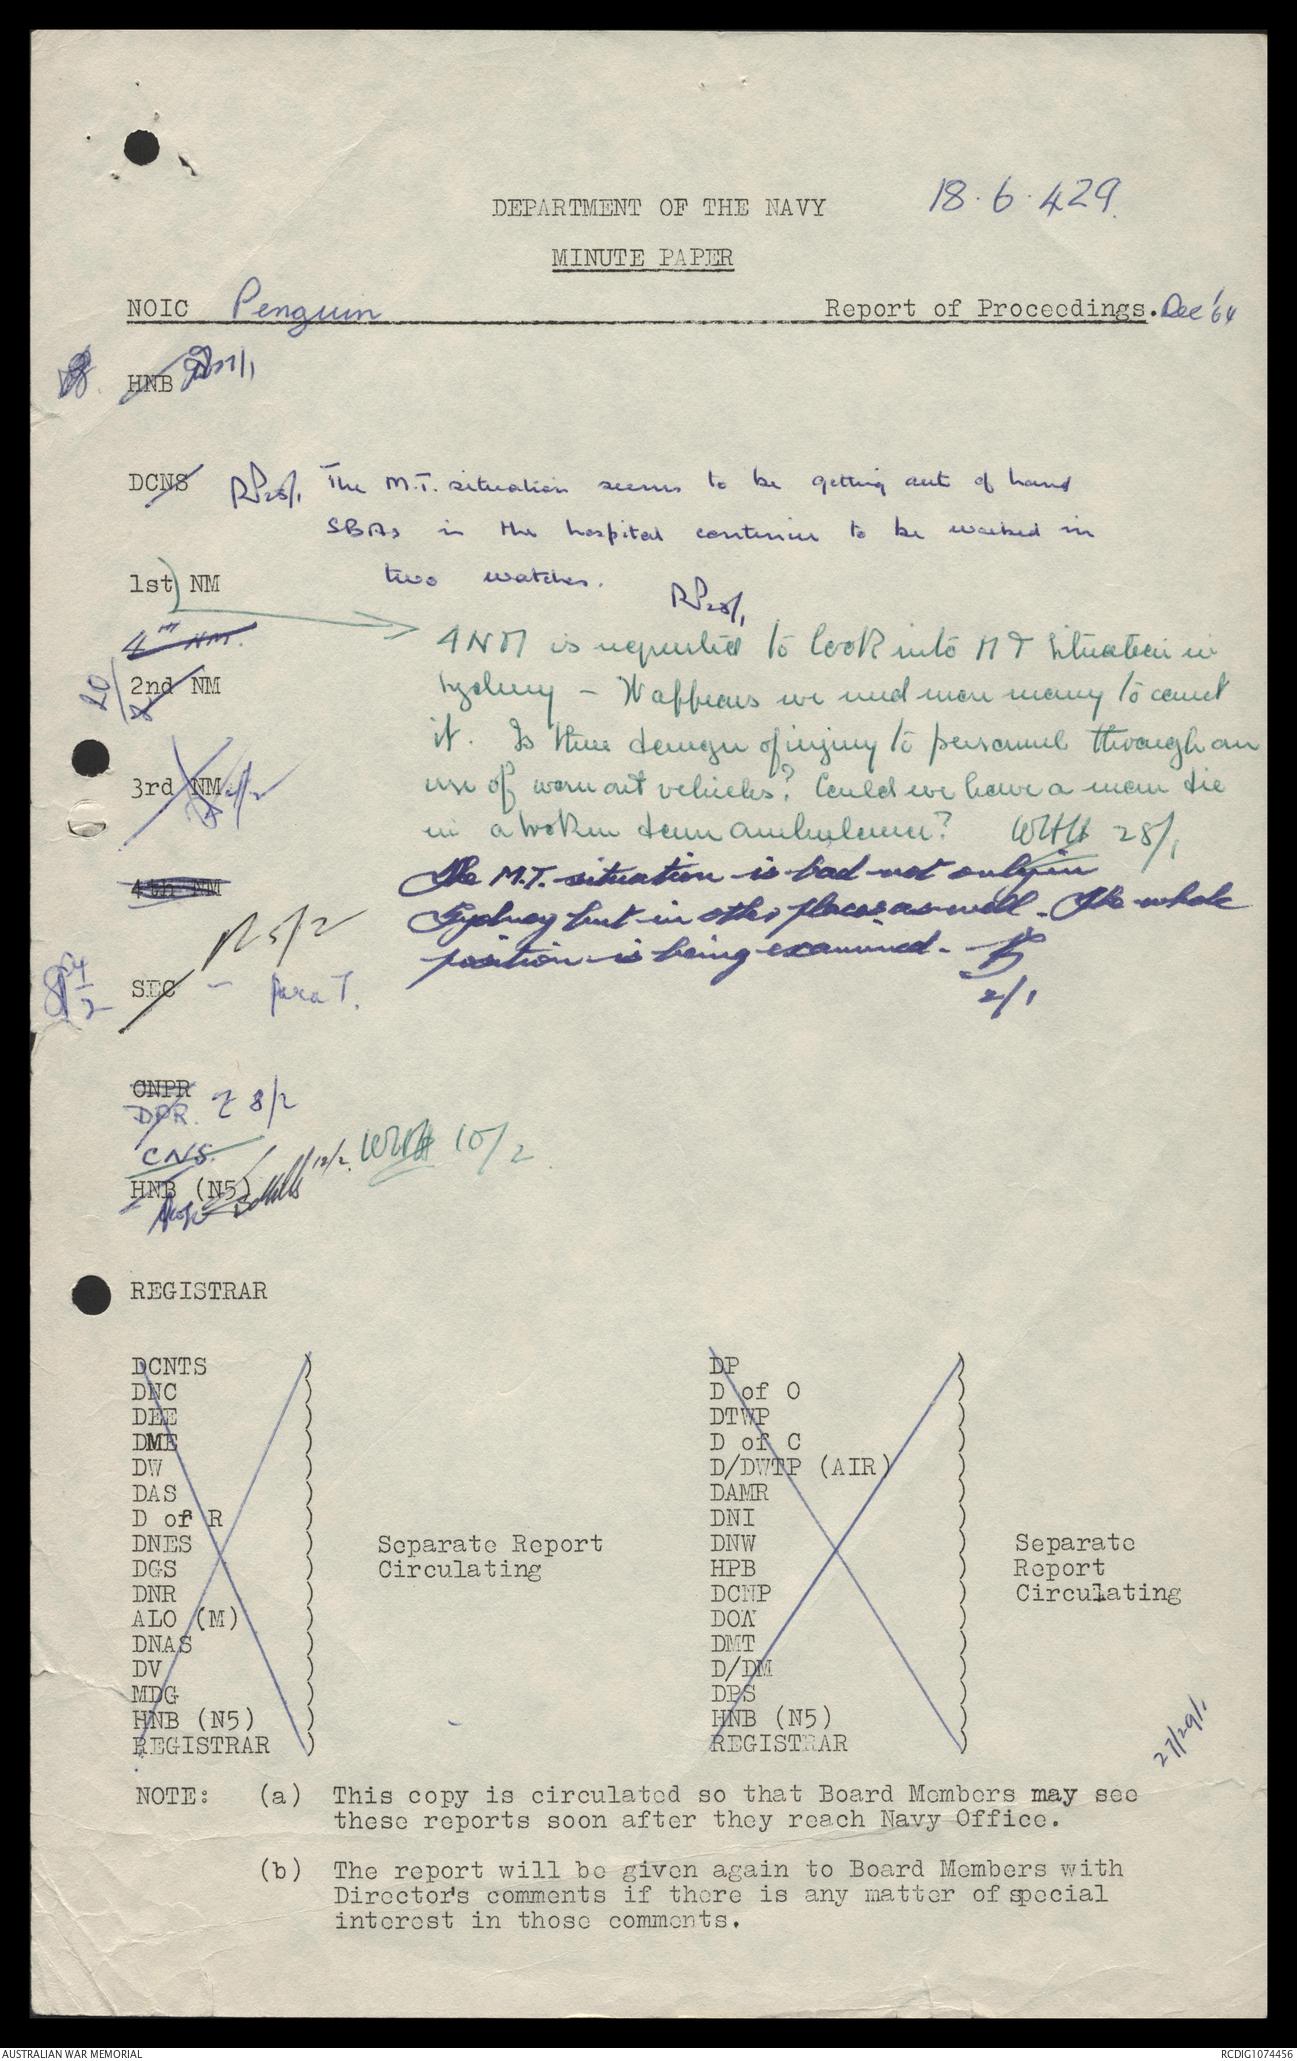 18.6.429.
DEPARTMENT OF THE NAVY
MINUTE PAPER
NOIC Penguin Report of Proceedings. Dec '64
HNB
DCNS RP 28/1 The M.T. situation seems to be getting out of hand
SBAs in the hospital continue to be worked in
two watches.
RP 28/1
1st NM
4th NM.
4NM is requested to look into MT situation in
Sydney - It appears we need more money to correct
it. Is there danger of injury to personnel through an
use of worn out vehicles? Could we have a man die
in a broken down ambulance? WHH 28/1
2nd NM
3rd NM
4th NM
The M.T. situation is bad not only in
Sydney but in other places as well. The whole
position is being examined.
2/1
5/2
SEC - para 7.
CNPR
DPR. 8/2
CNS. WHH 10/2
HNB (N5) 12/2
REGISTRAR
DCNTS
DNC
DEE
DME
DW
DAS
D of R
DNES
DGS
DNR
ALO (M)
DNAS
DV
MDG
HNB (N5)
REGISTRAR
Separate Report
Circulating
DP
D of O
DTWP
D of C
D/DWTP (AIR)
DAMR
DNI
DNW
HPB
DCNP
DOA
DMT
D/DM
DPS
HNB (N5)
REGISTRAR
Separate
Report
Circulating
27/29/1
NOTE: (a) This copy is circulated so that Board Members may see
these reports soon after they reach Navy Office.
(b) The report will be given again to Board Members with
Director's comments if there is any matter of special
interest in those comments.
AUSTRALIAN WAR MEMORIAL RCDIG1074456